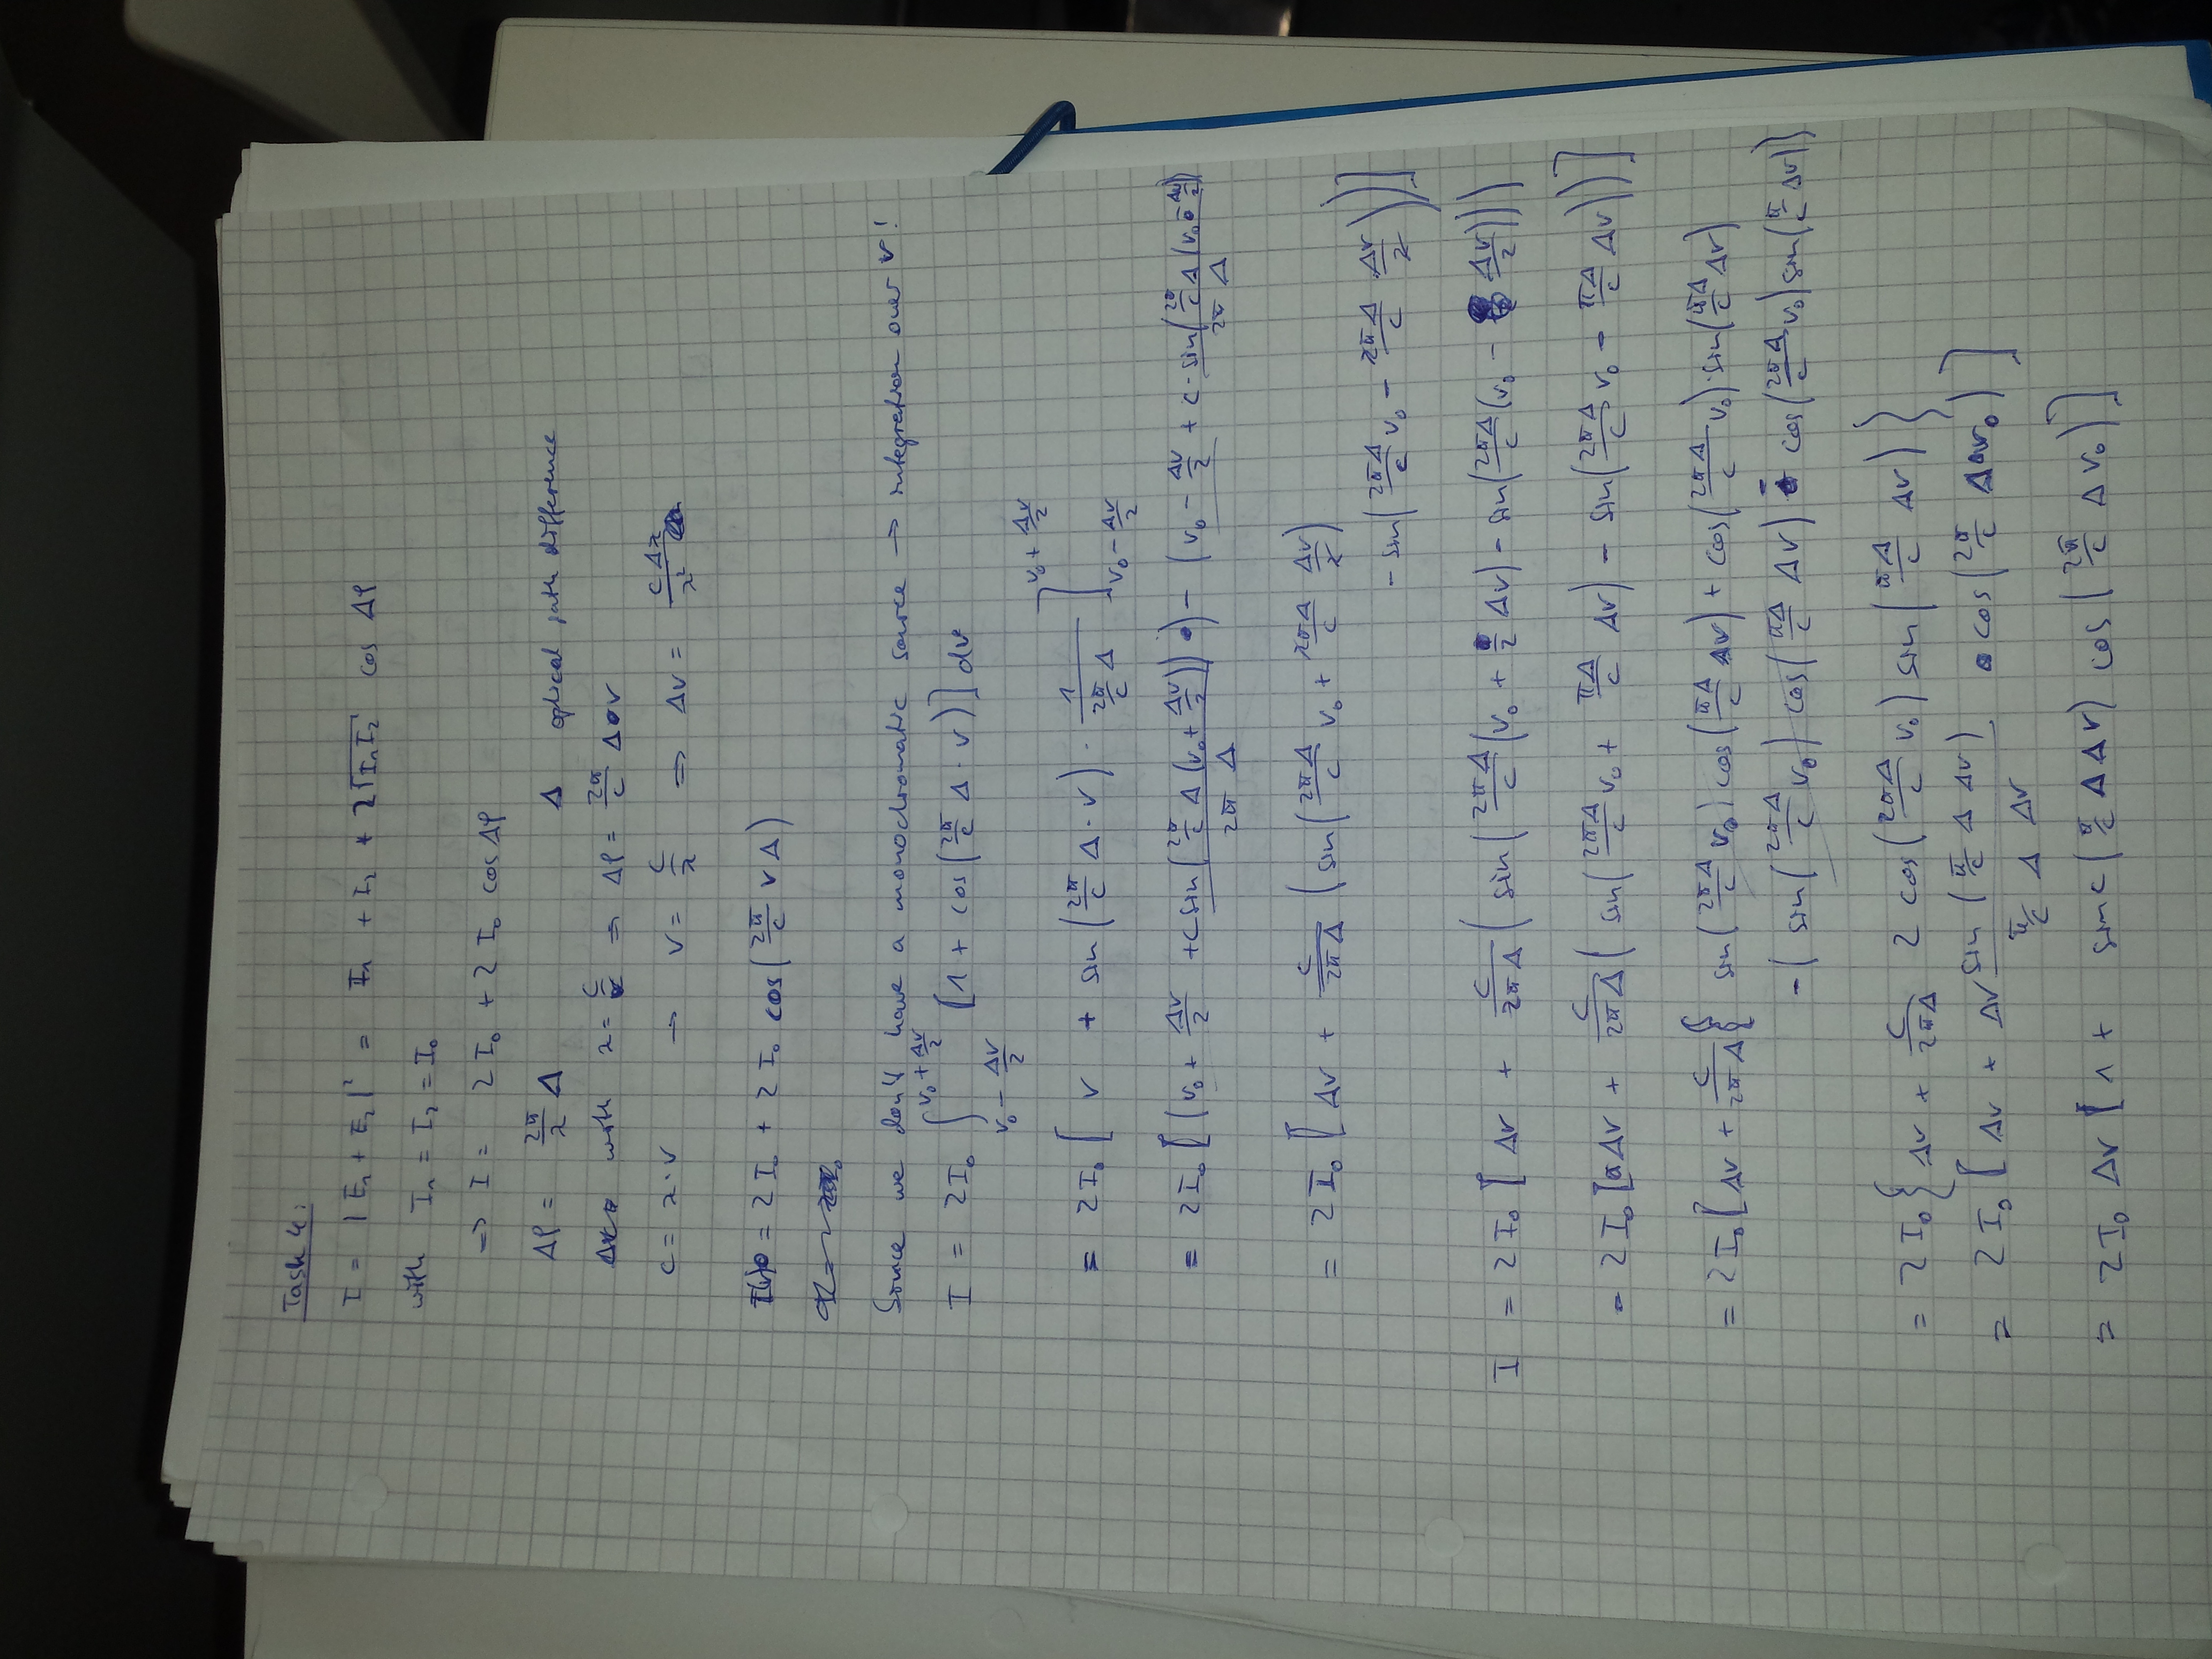 Task 4:
I = |E₁ + E₂|² = I₁ + I₂ + 2√(I₁I₂) cos Δφ
with I₁ = I₂ = I₀
→ I = 2 I₀ + 2 I₀ cos Δφ
Δφ = 2π/λ Δ    Δ optical path difference
with λ = c/ν ⇒ Δφ = 2π/c Δ ν
c = λ·ν → ν = c/λ ⇒ Δν = cΔλ/λ²
I(ν) = 2 I₀ + 2 I₀ cos(2π/c ν Δ)
Since we don't have a monochromatic source → integration over ν!
I = 2I₀ ∫_{ν₀ - Δν/2}^{ν₀ + Δν/2} [1 + cos(2π/c Δ · ν)] dν
= 2I₀ [ ν + sin(2π/c Δ · ν) · 1/(2π/c Δ) ]_{ν₀ - Δν/2}^{ν₀ + Δν/2}
= 2I₀ [(ν₀ + Δν/2 + c sin(2π/c Δ (ν₀ + Δν/2))/(2π Δ)) - (ν₀ - Δν/2 + c · sin(2π/c Δ (ν₀ - Δν/2))/(2π Δ)
= 2 I₀ [Δν + c/(2πΔ) (sin(2πΔ/c ν₀ + 2πΔ/c Δν/2)
- sin(2πΔ/c ν₀ - 2πΔ/c Δν/2))]
I = 2 I₀ [Δν + c/(2πΔ) (sin(2πΔ/c (ν₀ + /2 Δν) - sin(2πΔ/c (ν₀ - Δν/2)))
= 2 I₀ [Δν + c/(2πΔ) (sin(2πΔ/c ν₀ + πΔ/c Δν) - sin(2πΔ/c ν₀ - πΔ/c Δν))]
= 2 I₀ [Δν + c/(2πΔ) { sin(2πΔ/c ν₀) cos(πΔ/c Δν) + cos(2πΔ/c ν₀) · sin(πΔ/c Δν)
- (sin(2πΔ/c ν₀) cos(πΔ/c Δν) - cos(2πΔ/c ν₀) sin(π/c Δν))
= 2 I₀ {Δν + c/(2πΔ) 2 cos(2πΔ/c ν₀) sin(πΔ/c Δν)}
= 2 I₀ [Δν + Δν sin(π/c Δ Δν)/(π/c Δ Δν) · cos(2π/c Δ ν₀)]
= 2I₀ Δν [1 + sinc(π/c Δ Δν) cos(2π/c Δ ν₀)]